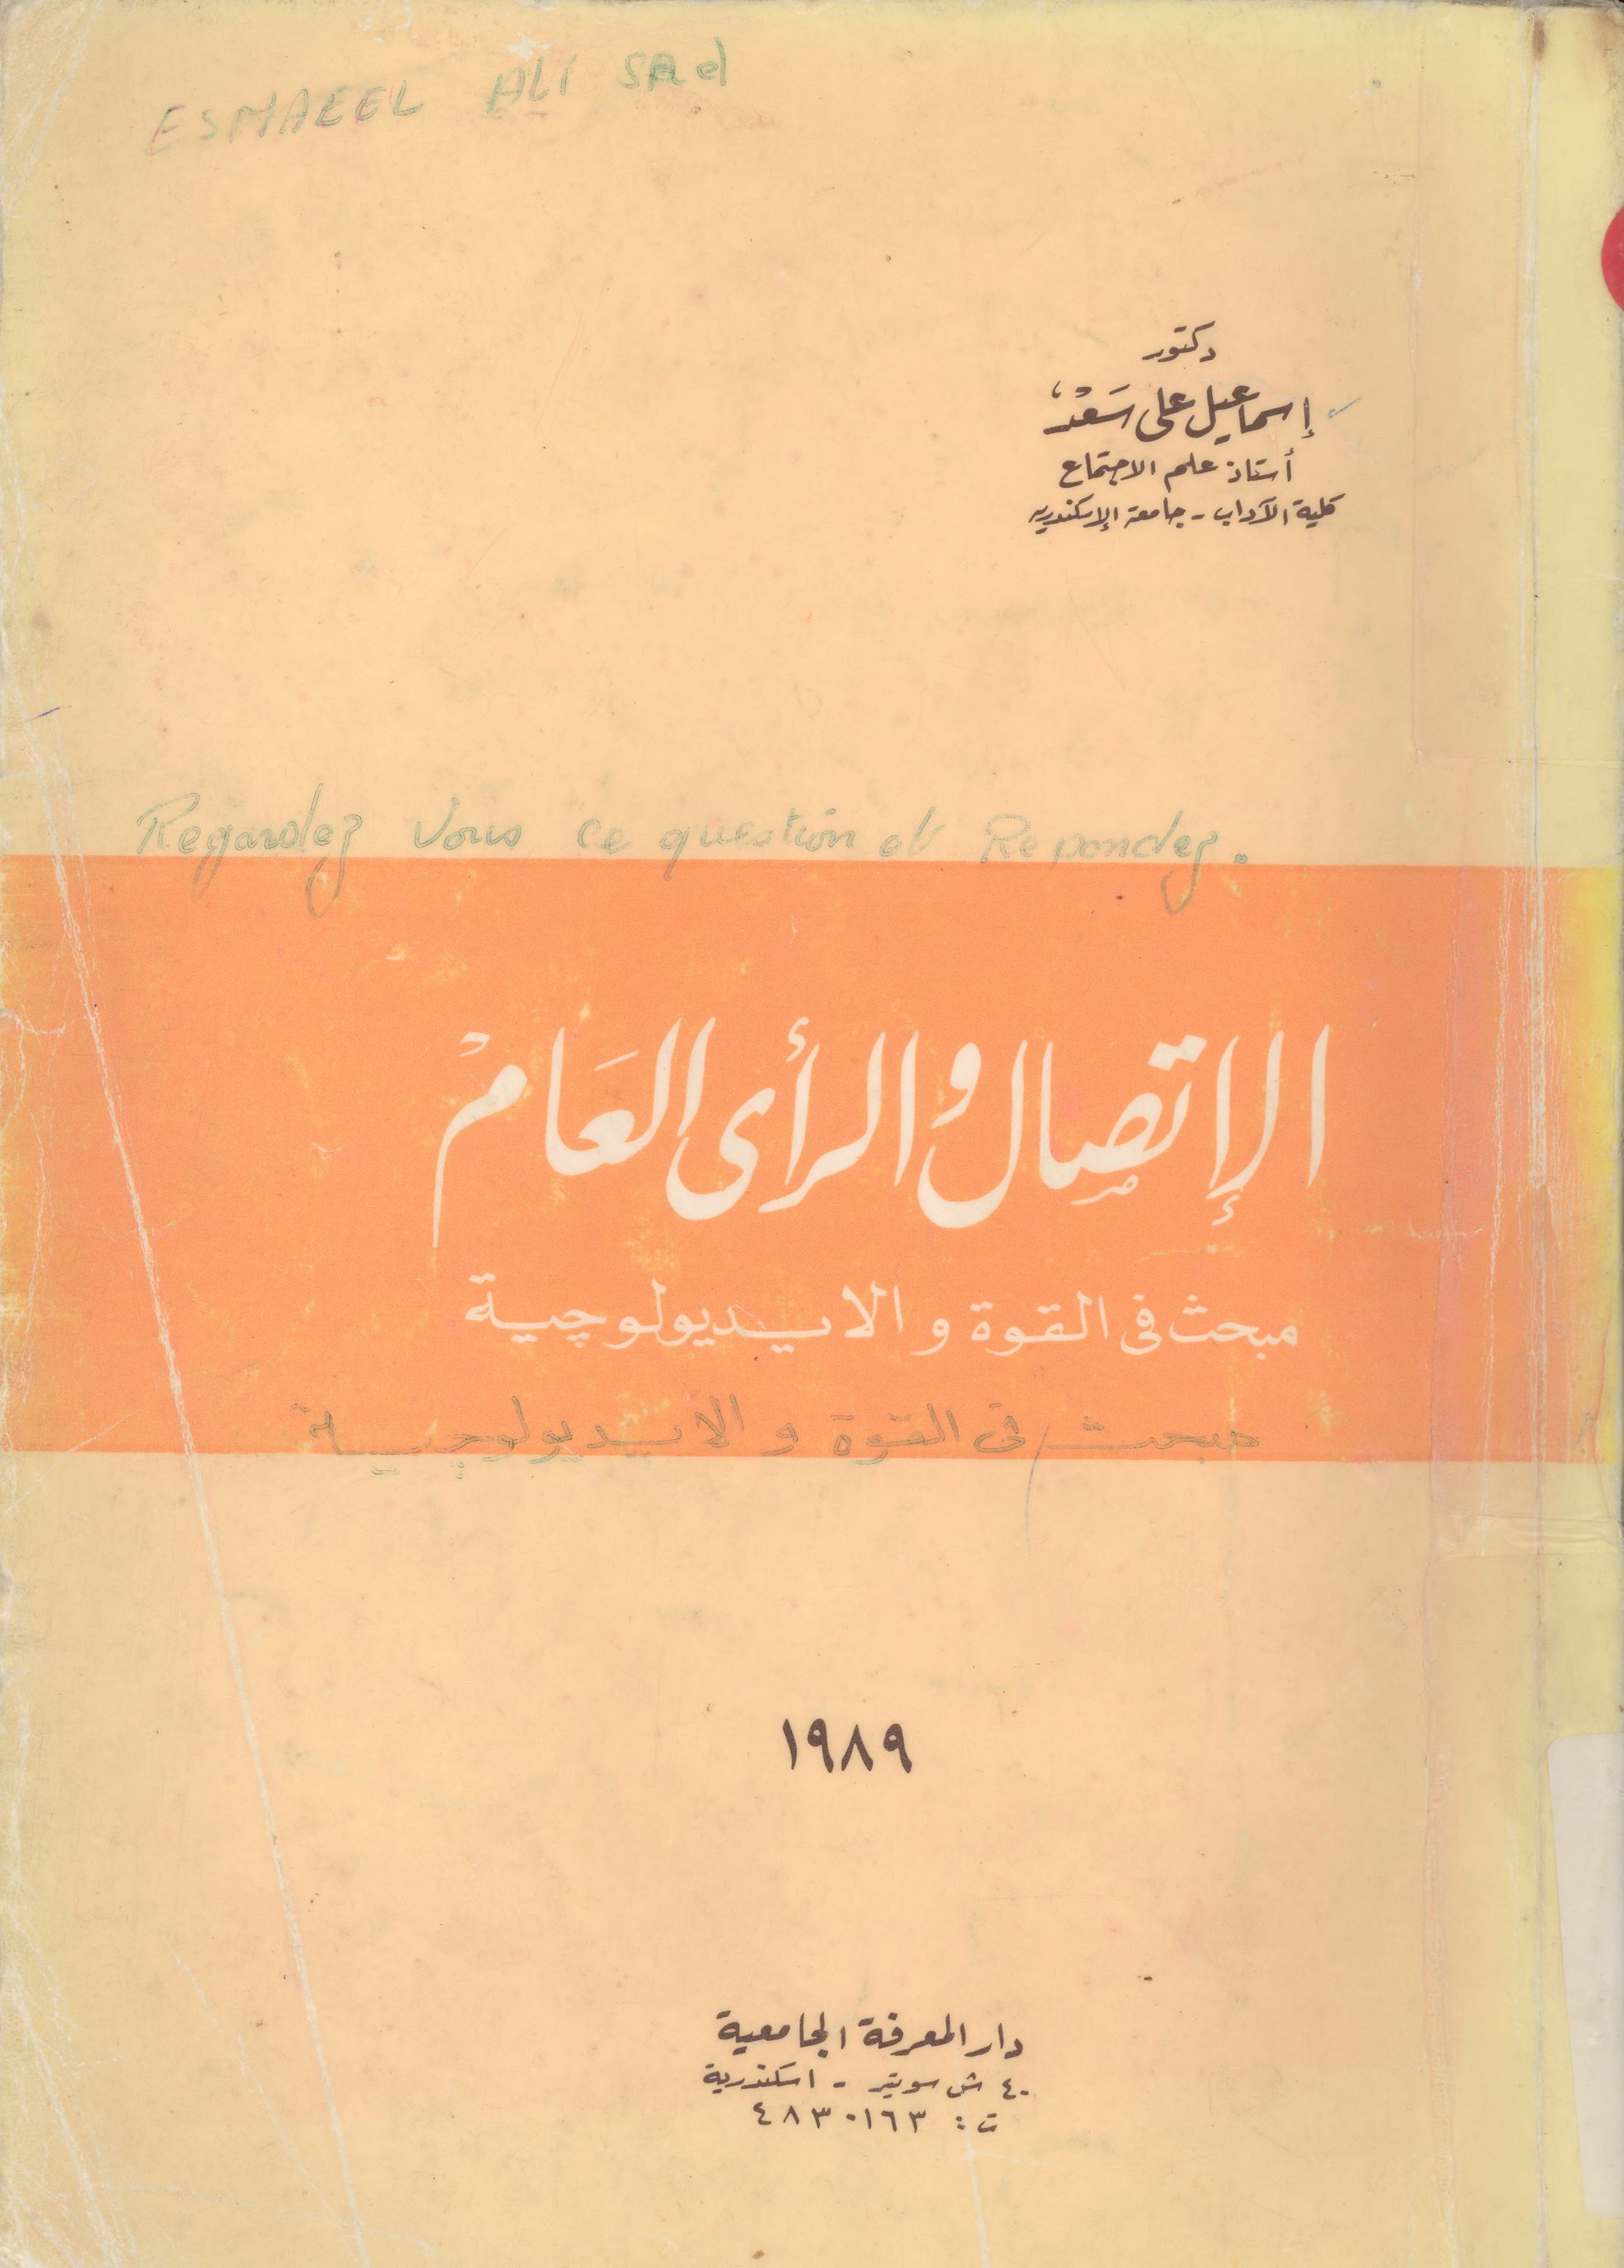 ESMAEEL ALI SAd
دكتور
إسماعيل على سَعْد
أستاذ علم الاجتماع
كلية الآداب - جامعة الإسكندرية
Regardez Vous ce question et Repondez.
الإتصال والرأى العَام
مبحث فى القوة والايديولوچية
مبحث فى القوة والايديولوچية
١٩٨٩
دار المعرفة الجامعية
٤٠ ش سوتير - اسكندرية
ت : ٤٨٣٠١٦٣